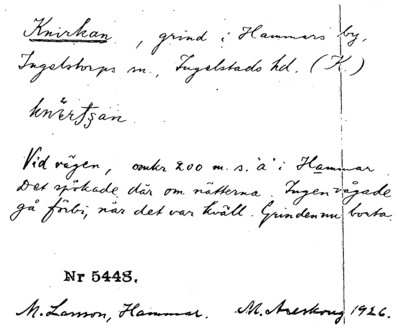 Knirkan, grind i Hammars by,
Ingelstorps sn., Ingelstads hd. (K.)
Vid vägen, omkr 200 m. s. 'a' i Hammar.
Det spökade där om nätterna. Ingen vågade
gå förbi, när det var kväll. Grinden nu borta.
Nr 5448.
M. Larsson, Hammar. M. Areskoug 1926.